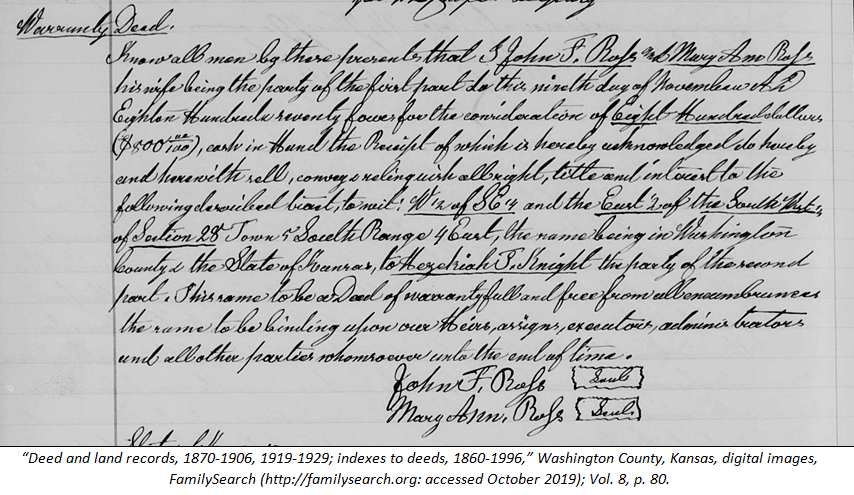 Warranty Deed.
Know all men by these presents that I John F. Ross and Mary Ann Ross
his wife being the party of the first part do this ninth day of November AD
Eighteen Hundred & seventy four for the consideration of Eight Hundred dollars
($800 no/100), cash in Hand the Receipt of which is hereby acknowledged do hereby
and herewith sell, convey & relinquish all right, title and interest to the
following described tract, to wit: W 1/2 of SE 4 and the East 2 of the South West 4
of Section 28 Town 5 South Range 4 East, the same being in Washington
County & the State of Kansas, to Hezekiah S. Knight the party of the second
part. This same to be a Deed of warranty full and free from all encumbrances
the same to be binding upon our Heirs, assigns, executors, administrators
and all other parties whomsoever unto the end of time.
John F. Ross Seal
Mary Ann. Ross Seal.
"Deed and land records, 1870-1906, 1919-1929; indexes to deeds, 1860-1996," Washington County, Kansas, digital images,
FamilySearch (http://familysearch.org: accessed October 2019); Vol. 8, p. 80.